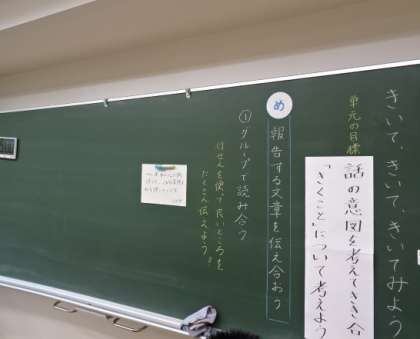 きいて、きいて、きいてみよう
単元の目標
話の意図を考えてきき合
「きくこと」について考えよう
め
報告する文章を伝え合おう
①グループで読み合う
付せんを使って良いところを
たくさん伝えよう。